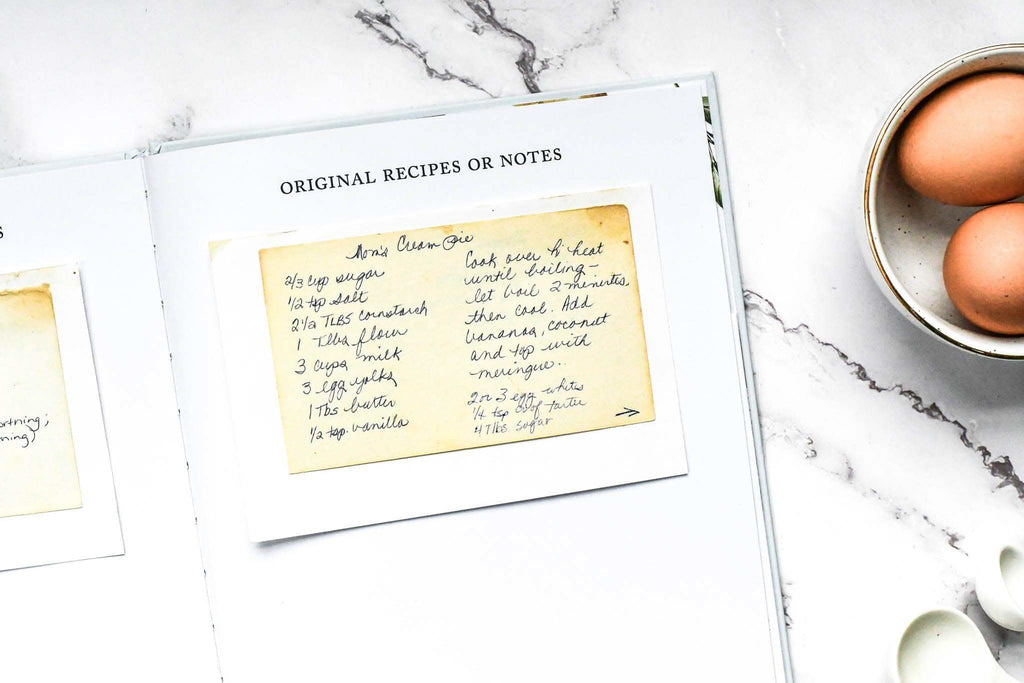 S
ortning;
ning)
ORIGINAL RECIPES OR NOTES
Mom's Cream Pie
2/3 cup sugar
1/2 tsp salt
2 1/2 TLBS cornstarch
1 Tlbs flour
3 cups milk
3 egg yolks
1 Tbs butter
1/2 tsp. vanilla
Cook over hi heat
until boiling-
let boil 2 minutes,
then cool. Add
bananas, coconut
and top with
meringue..
2 or 3 egg whites
1/4 tsp cr of tarter
4 Tlbs sugar